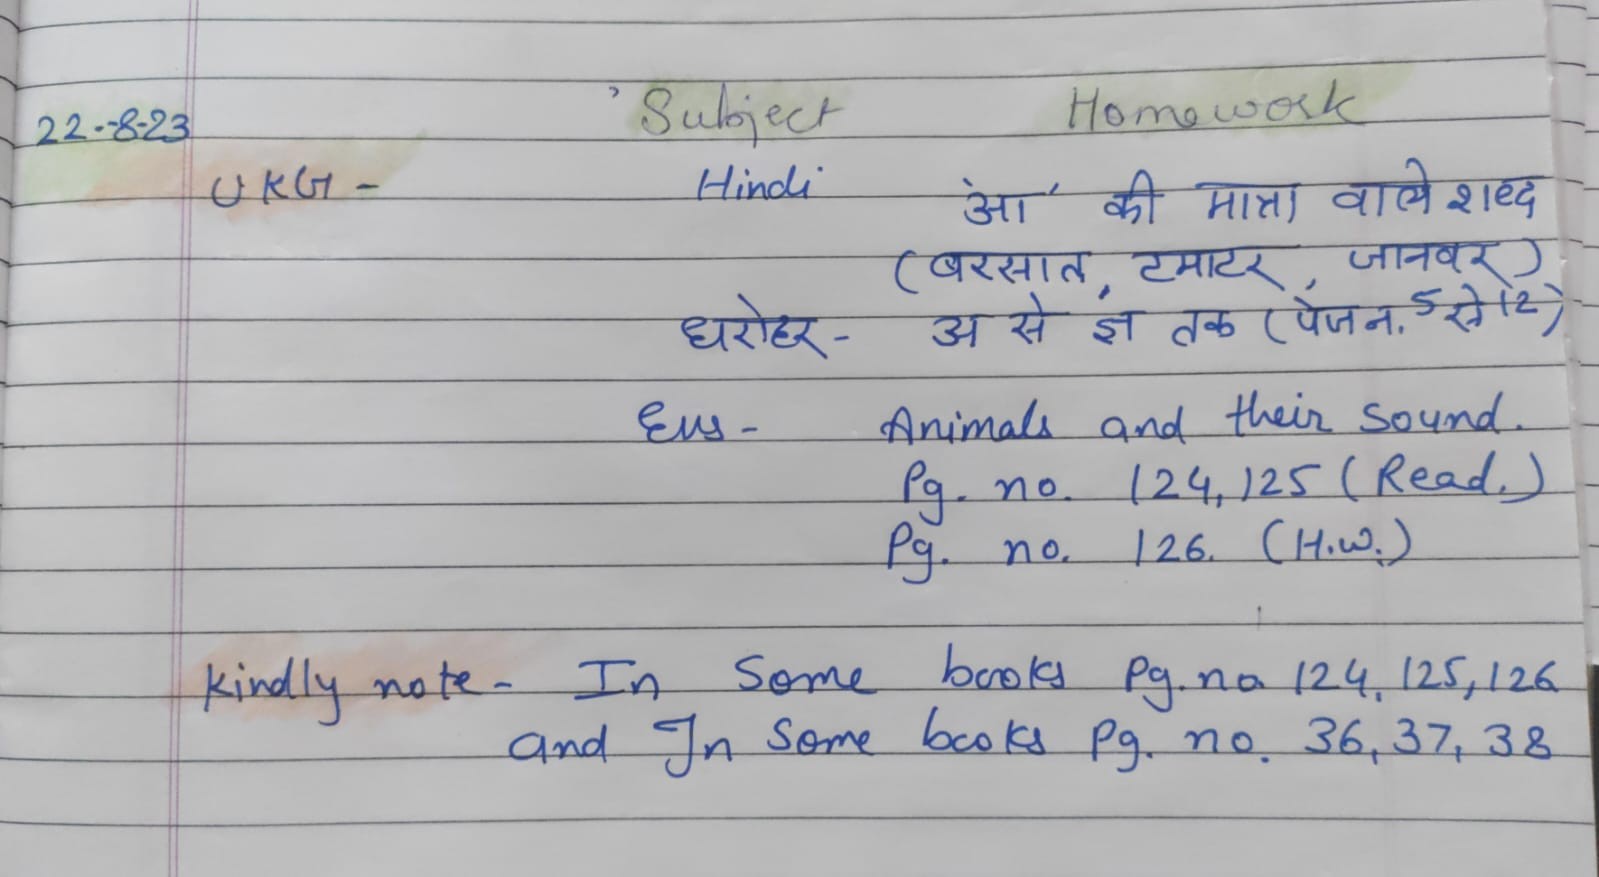 22-8-23 Subject Homework
UKG - Hindi 'आ' की मात्रा वाले शब्द
(बरसात, टमाटर, जानवर)
धरोहर - अ से ज्ञ तक (पेज न. 5 से 12)
Evs - Animals and their sound.
Pg. no. 124, 125 (Read.)
Pg. no. 126. (H.W.)
Kindly note - In Some books Pg. no 124, 125, 126
and In Some books Pg. no. 36, 37, 38